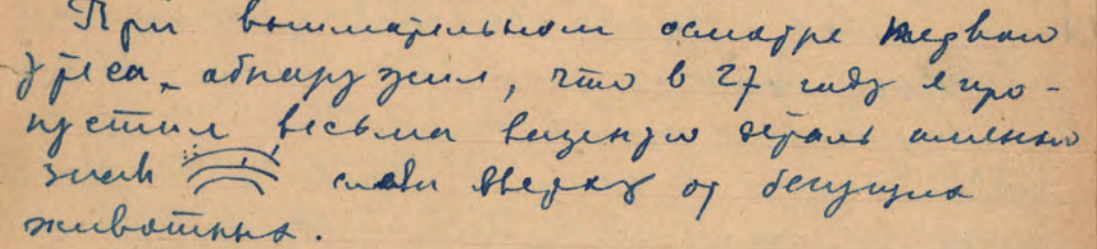 При внимательном осмотре первого
утеса, обнаружил, что в 27 году я про-
пустил весьма важную деталь именно
знак слева вверху от бегущих
животных.